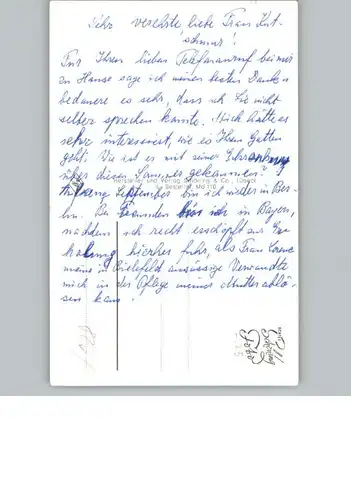 Sehr verehrte liebe Frau Kut-
schmar!
Für Ihren lieben Telefonanruf bei mir
zu Hause sage ich meinen besten Dank u.
bedauere es sehr, dass ich Sie nicht
selber sprechen konnte. Mich hätte es
sehr interessiert, wie es Ihrem Gatten
geht. Wie ist es mit seiner
über diesen Sommer gekommen?
Anfang September bin ich wieder in Ber-
lin. Bei Freunden bin ich in Bayern,
nachdem ich recht erschöpft zur Er-
holung hierher fuhr, als Frau
meine in Bielefeld ansässige Verwandte
mich in der Pflege meiner Mutter ablö-
sen kam.
Hersteller und Verlag Schöning & Co., Lübeck